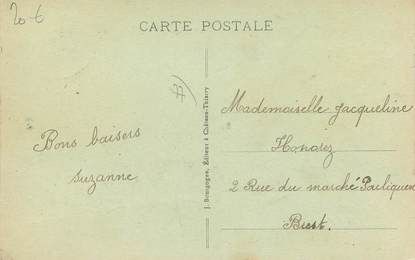 20-6
CARTE POSTALE
77
J. Bourgogne, Éditeur à Château-Thierry
Bons baisers
suzanne
Mademoiselle Jacqueline
2 Rue du marché Pouliquen
Brest.